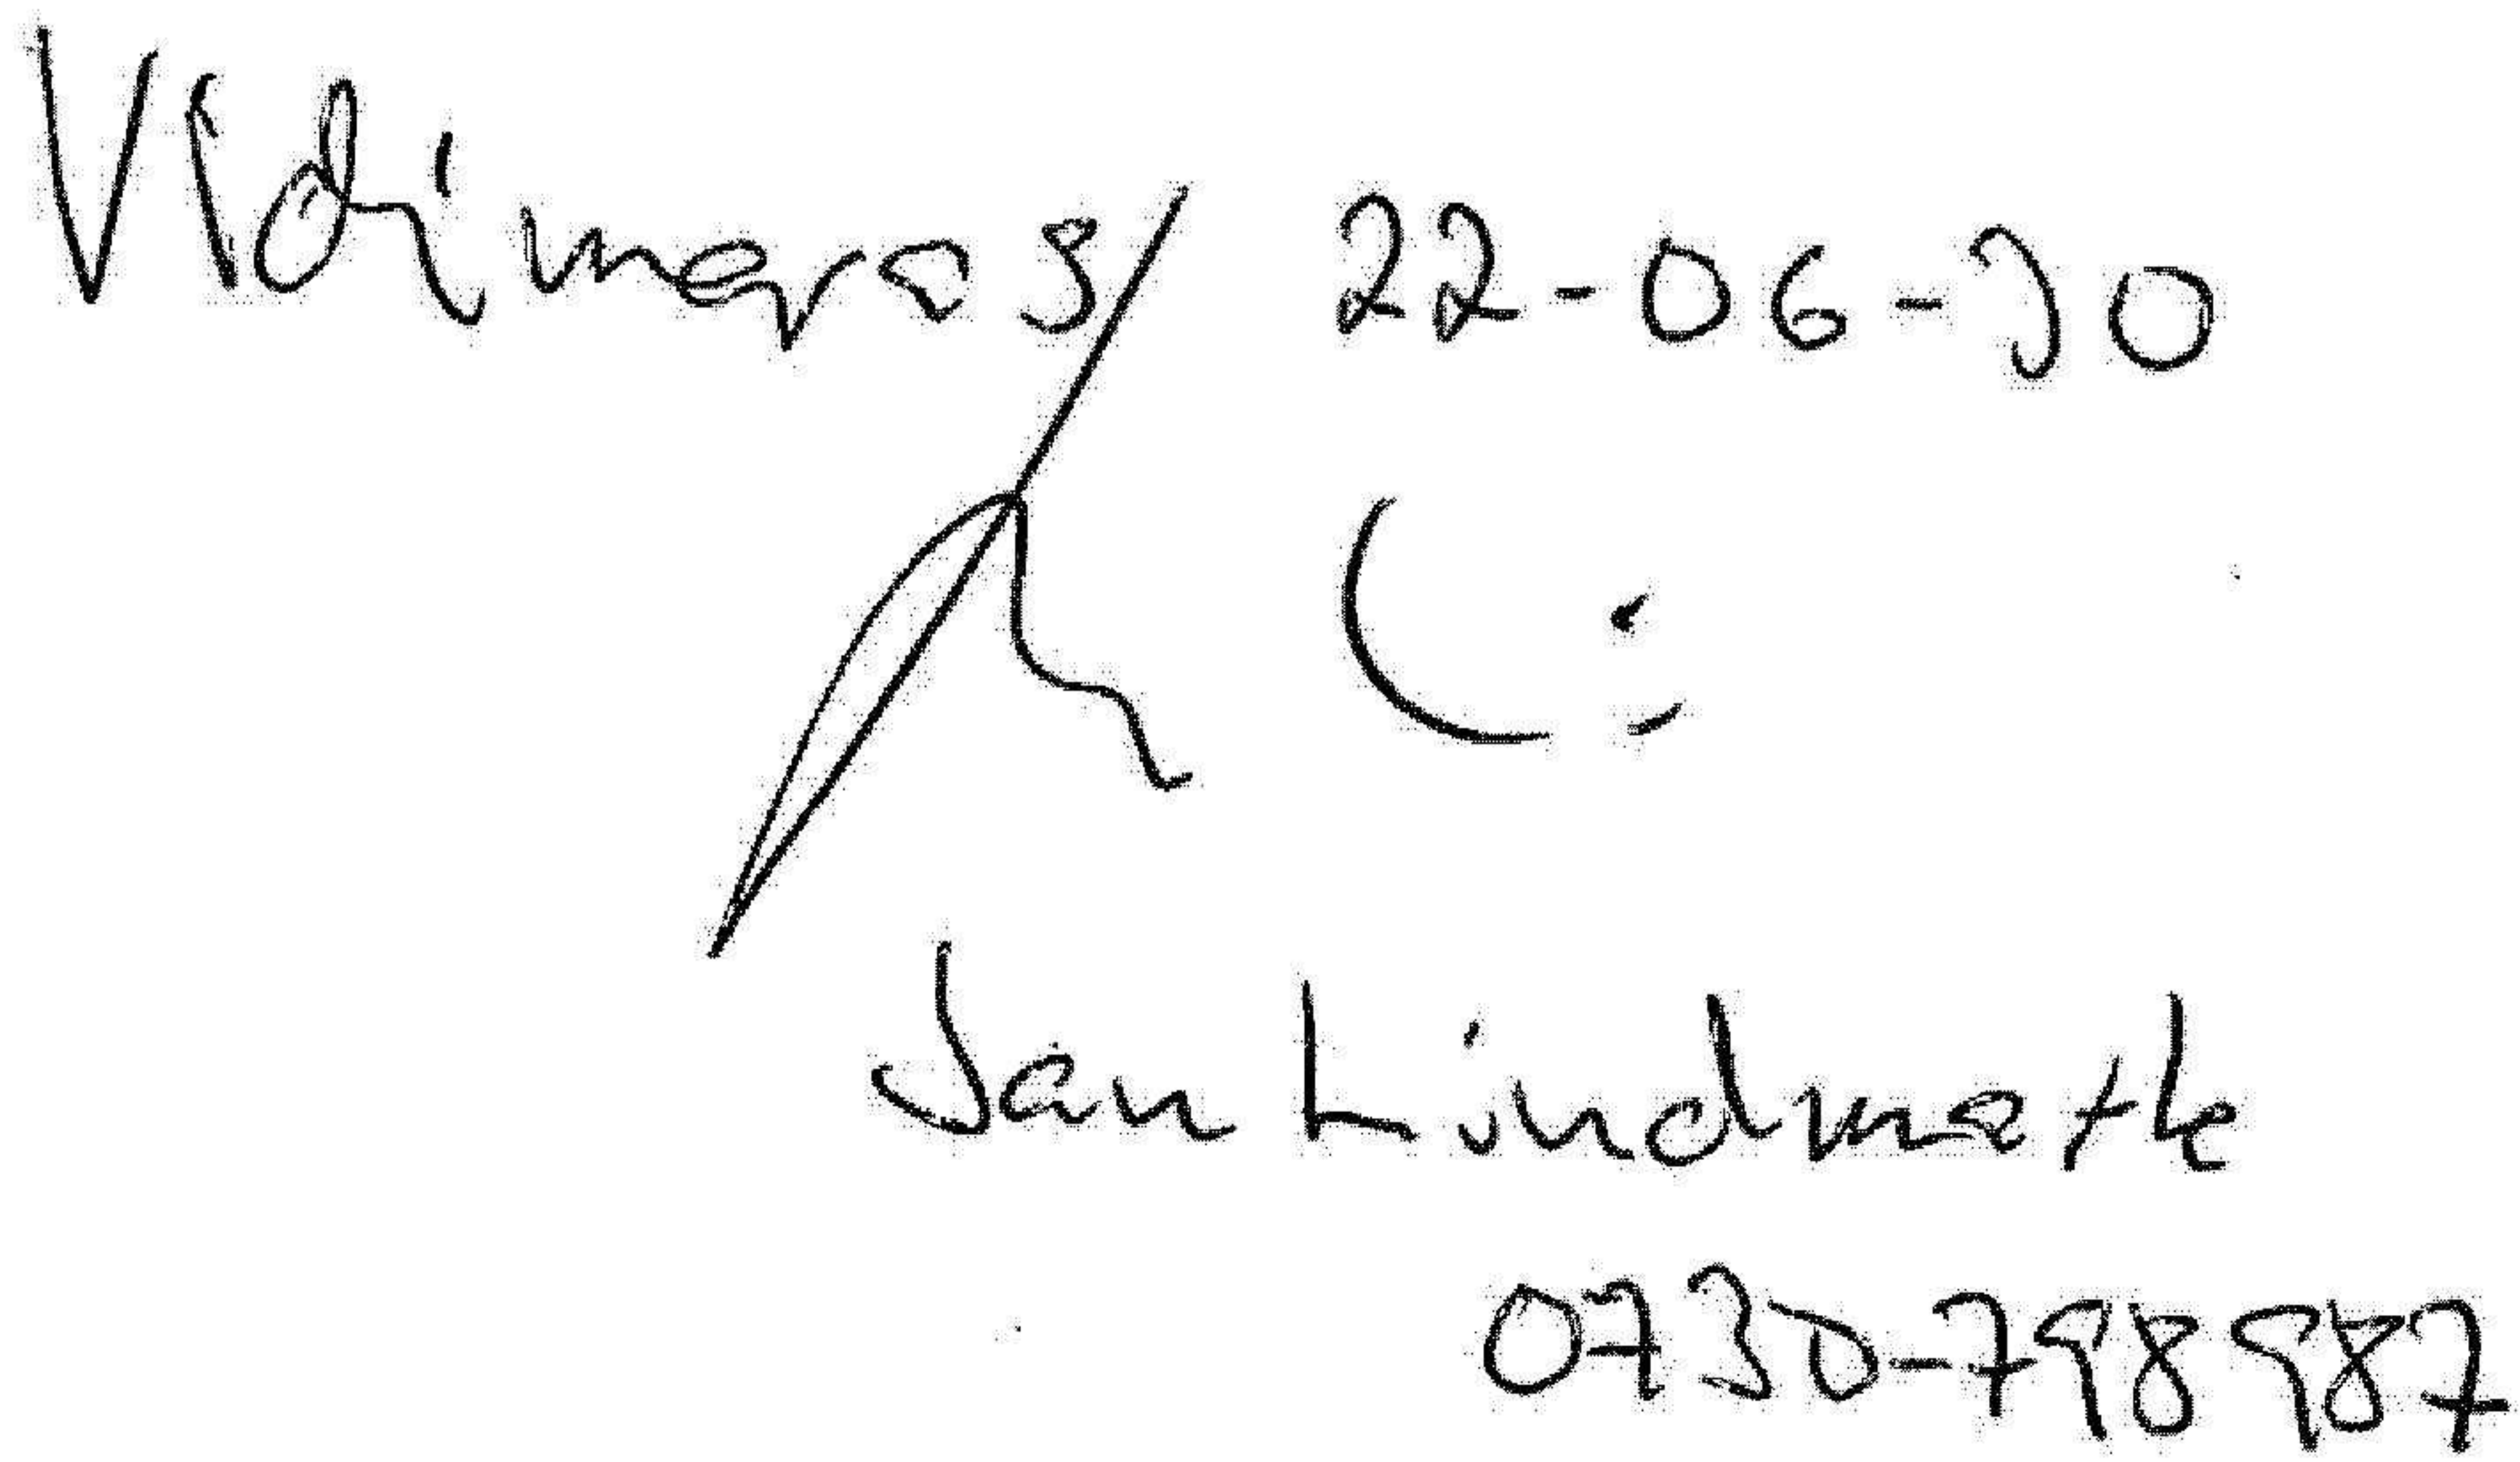 Vidimeras 22-06-30
Jan Lindmark
0730-798987